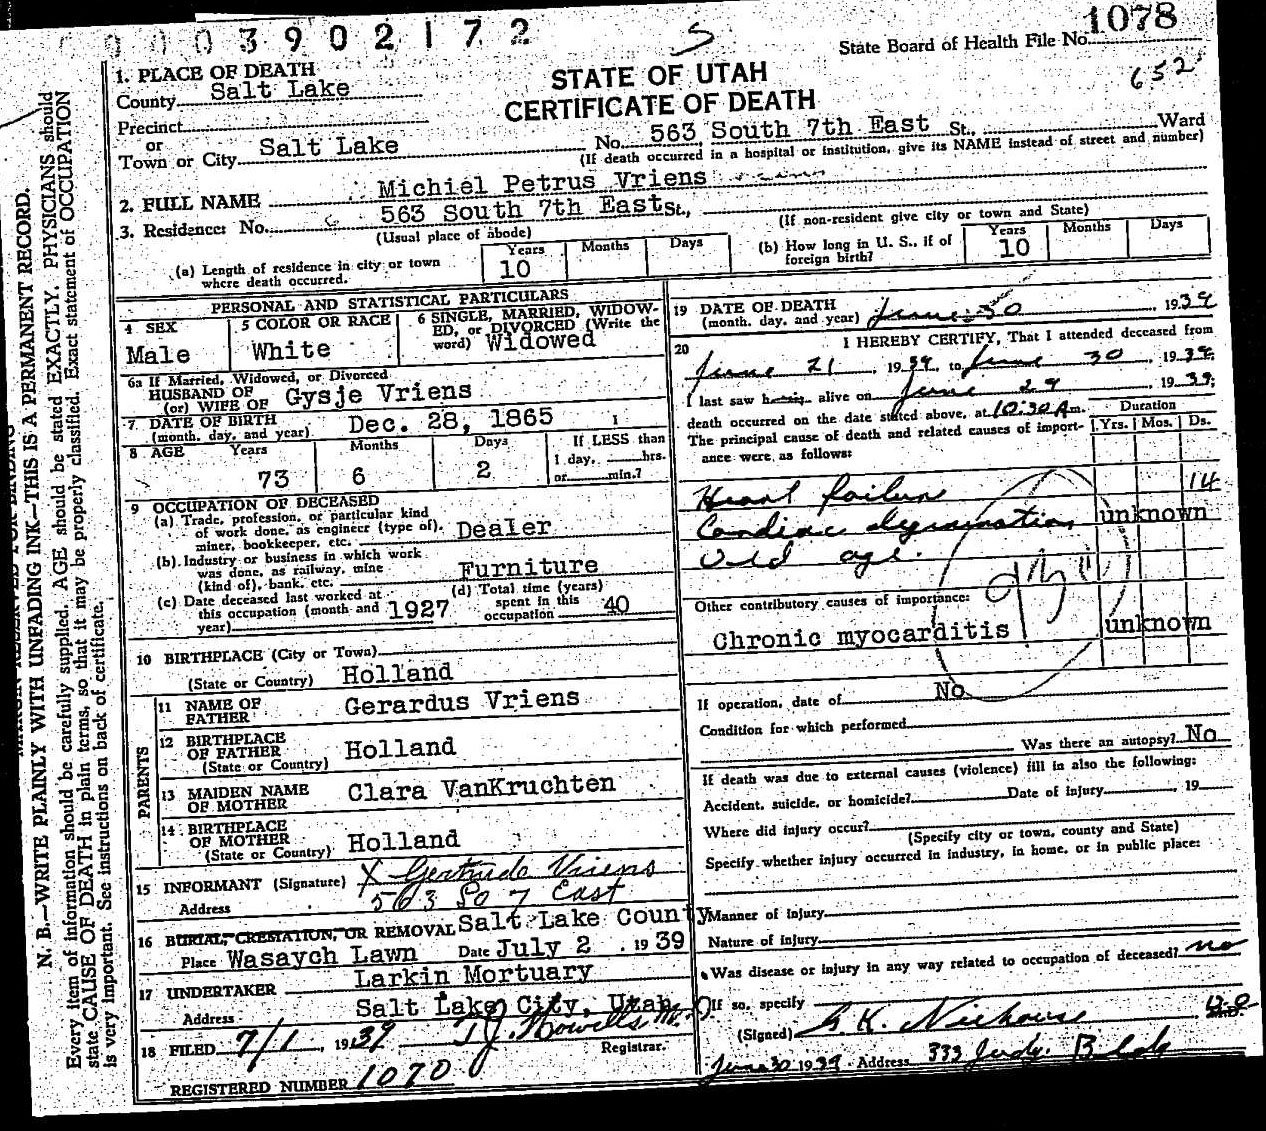 0 0 0 0 3 9 0 2 1 7 2
S
State Board of Health File No. 1078
652
STATE OF UTAH
CERTIFICATE OF DEATH
1. PLACE OF DEATH
County Salt Lake
Precinct
or
Town or City Salt Lake No. 563 South 7th East St., Ward
(If death occurred in a hospital or institution, give its NAME instead of street and number)
2. FULL NAME Michiel Petrus Vriens
3. Residence: No. 563 South 7th East St.,
(Usual place of abode) (If non-resident give city or town and State)
(a) Length of residence in city or town where death occurred. Years 10 Months Days
(b) How long in U. S., if of foreign birth? Years 10 Months Days
PERSONAL AND STATISTICAL PARTICULARS
4 SEX Male
5 COLOR OR RACE White
6 SINGLE, MARRIED, WIDOWED, or DIVORCED (Write the word) Widowed
6a If Married, Widowed, or Divorced
HUSBAND OF
(or) WIFE OF Gysje Vriens
7 DATE OF BIRTH
(month, day, and year) Dec. 28, 1865
8 AGE Years 73 Months 6 Days 2 If LESS than 1 day, hrs. or min.?
9 OCCUPATION OF DECEASED
(a) Trade, profession, or particular kind of work done, as engineer (type of), miner, bookkeeper, etc. Dealer
(b) Industry or business in which work was done, as railway, mine (kind of), bank, etc. Furniture
(c) Date deceased last worked at this occupation (month and year) 1927
(d) Total time (years) spent in this occupation 40
10 BIRTHPLACE (City or Town)
(State or Country) Holland
PARENTS
11 NAME OF FATHER Gerardus Vriens
12 BIRTHPLACE OF FATHER
(State or Country) Holland
13 MAIDEN NAME OF MOTHER Clara VanKruchten
14 BIRTHPLACE OF MOTHER
(State or Country) Holland
15 INFORMANT (Signature) X Gertrude Vriens
Address 563 So 7 East
16 BURIAL, CREMATION, OR REMOVAL Salt Lake County
Place Wasaych Lawn Date July 2, 1939
17 UNDERTAKER Larkin Mortuary
Address Salt Lake City, Utah
18 FILED 7/1, 1939 T J Howells M.D.
Registrar.
REGISTERED NUMBER 1070
19 DATE OF DEATH
(month, day, and year) June 30 1939
20 I HEREBY CERTIFY, That I attended deceased from
June 21, 1939, to June 30, 1939;
I last saw him alive on June 29, 1939;
death occurred on the date stated above, at 10:30 A m.
The principal cause of death and related causes of importance were, as follows:
Duration
Yrs. Mos. Ds.
Heart failure 14
Cardiac degeneration unknown
Old age.
Other contributory causes of importance:
Chronic myocarditis unknown
If operation, date of No
Condition for which performed
Was there an autopsy? No
If death was due to external causes (violence) fill in also the following:
Accident, suicide, or homicide? Date of injury , 19
Where did injury occur?
(Specify city or town, county and State)
Specify whether injury occurred in industry, in home, or in public place:
Manner of injury
Nature of injury
Was disease or injury in any way related to occupation of deceased? no
If so, specify
(Signed) K. Niehouse
June 30 1939. Address 333 Judge Bldg
MARGIN RESERVED FOR BINDING
N. B.—WRITE PLAINLY WITH UNFADING INK—THIS IS A PERMANENT RECORD.
Every item of information should be carefully supplied. AGE should be stated EXACTLY. PHYSICIANS should
state CAUSE OF DEATH in plain terms, so that it may be properly classified. Exact statement of OCCUPATION
is very important. See instructions on back of certificate.